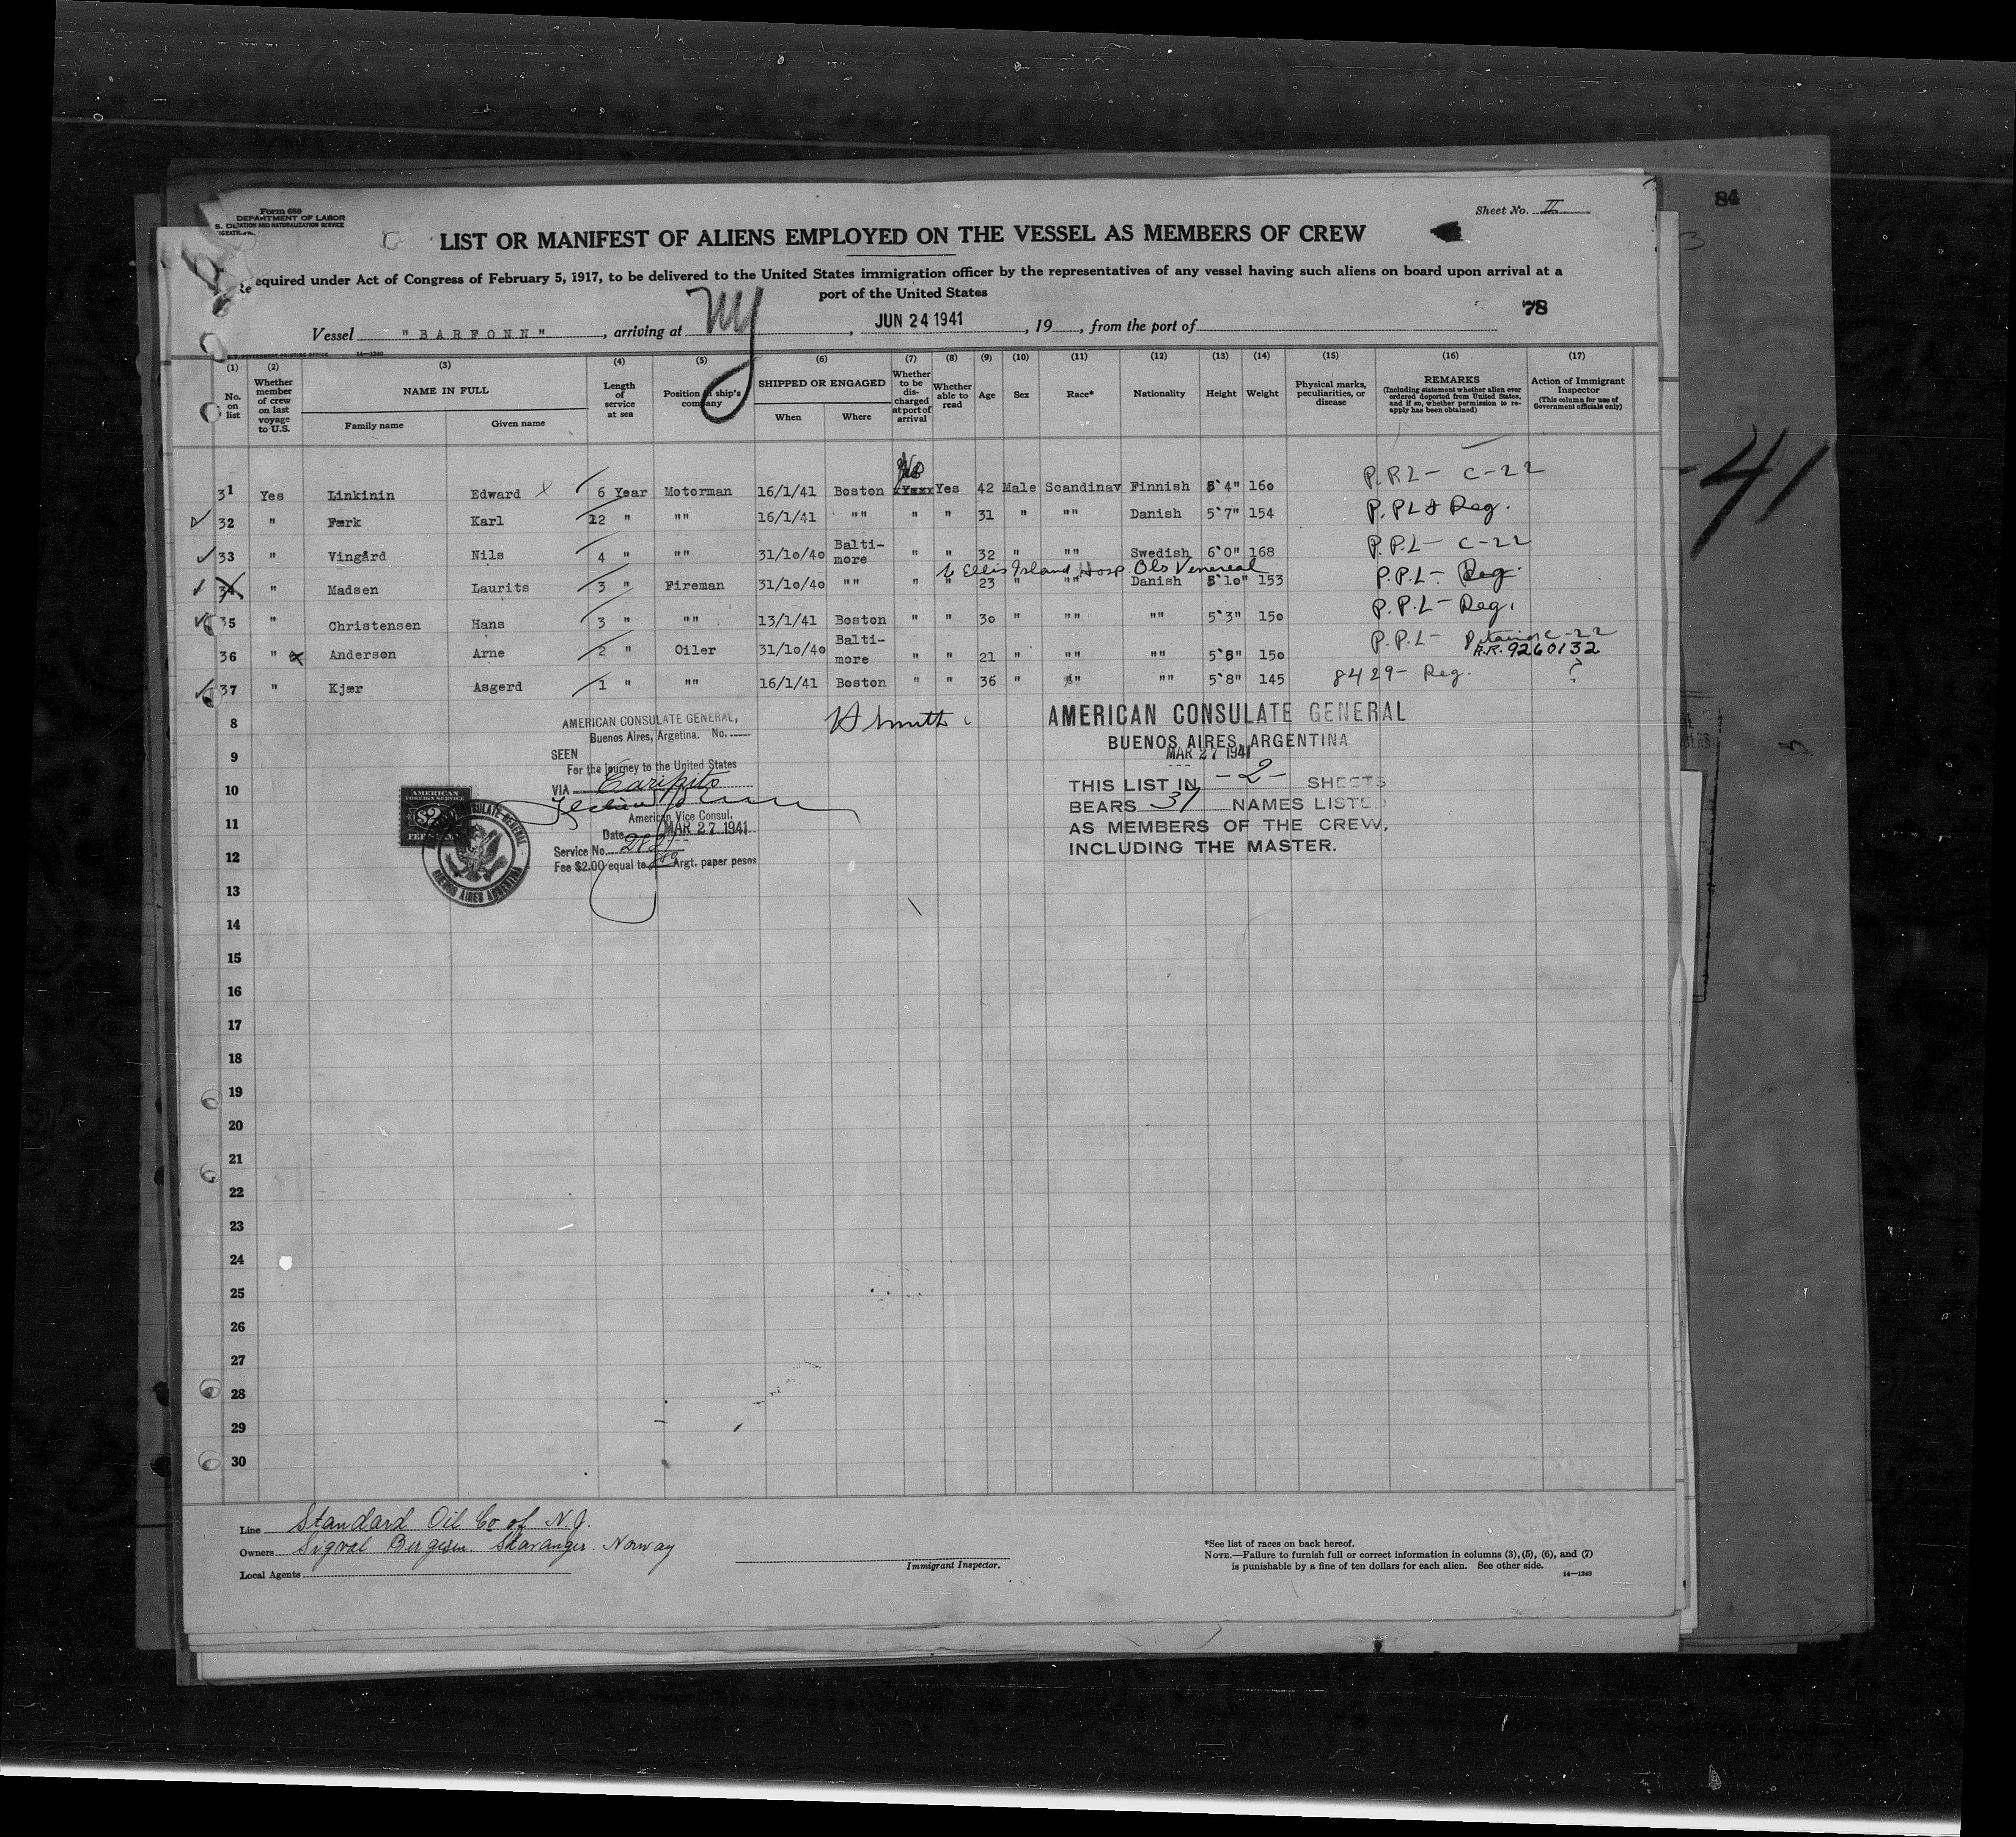 84
Form 680
DEPARTMENT OF LABOR
IMMIGRATION AND NATURALIZATION SERVICE
Sheet No. II
LIST OR MANIFEST OF ALIENS EMPLOYED ON THE VESSEL AS MEMBERS OF CREW
equired under Act of Congress of February 5, 1917, to be delivered to the United States immigration officer by the representatives of any vessel having such aliens on board upon arrival at a
port of the United States
78
Vessel "BARFONN", arriving at NY, JUN 24 1941, 19, from the port of
U. S. GOVERNMENT PRINTING OFFICE 14—1240
(1) (2) (3) (4) (5) (6) (7) (8) (9) (10) (11) (12) (13) (14) (15) (16) (17)
No. on list Whether member of crew on last voyage to U.S. NAME IN FULL Family name Given name Length of service at sea Position in ship's company SHIPPED OR ENGAGED When Where Whether to be discharged at port of arrival Whether able to read Age Sex Race* Nationality Height Weight Physical marks, peculiarities, or disease REMARKS (Including statement whether alien ever ordered deported from United States, and if so, whether permission to reapply has been obtained) Action of Immigrant Inspector (This column for use of Government officials only)
No
31 Yes Linkinin Edward 6 Year Motorman 16/1/41 Boston Yes 42 Male Scandinav Finnish 5'4" 160 P.P.L - C-22
32 " Færk Karl 12 " "" 16/1/41 "" " " 31 " "" Danish 5'7" 154 P.P.L & Reg.
33 " Vingård Nils 4 " "" 31/10/40 Balti-more " " 32 " "" Swedish 6'0" 168 P.P.L - C-22
to Ellis Island Hosp. Obs Venereal
34 " Madsen Laurits 3 " Fireman 31/10/40 "" " " 23 " "" Danish 5'10" 153 P.P.L - Reg.
35 " Christensen Hans 3 " "" 13/1/41 Boston " " 30 " "" "" 5'3" 150 P.P.L - Reg.
36 " x Anderson Arne 2 " Oiler 31/10/40 Balti-more " " 21 " "" "" 5'8" 150 P.P.L - C-22 A.R. 9260132
37 " Kjær Asgerd 1 " "" 16/1/41 Boston " " 36 " " "" 5'8" 145 8429 - Reg. ?
8
9
10
11
12
13
14
15
16
17
18
19
20
21
22
23
24
25
26
27
28
29
30
AMERICAN CONSULATE GENERAL,
Buenos Aires, Argetina. No.
SEEN
For the journey to the United States
VIA Caripito
American Vice Consul.
Date MAR 27 1941
Service No.
Fee $2.00 equal to Argt. paper pesos
AMERICAN
FOREIGN SERVICE
$2
H Smith
AMERICAN CONSULATE GENERAL
BUENOS AIRES, ARGENTINA
MAR 27 1941
THIS LIST IN -2- SHEETS
BEARS 37 NAMES LISTED
AS MEMBERS OF THE CREW,
INCLUDING THE MASTER.
-41
Line Standard Oil Co of N.J.
Owners Sigval Bergesen. Stavanger. Norway
Local Agents
Immigrant Inspector.
*See list of races on back hereof.
NOTE.—Failure to furnish full or correct information in columns (3), (5), (6), and (7)
is punishable by a fine of ten dollars for each alien. See other side.
14—1240